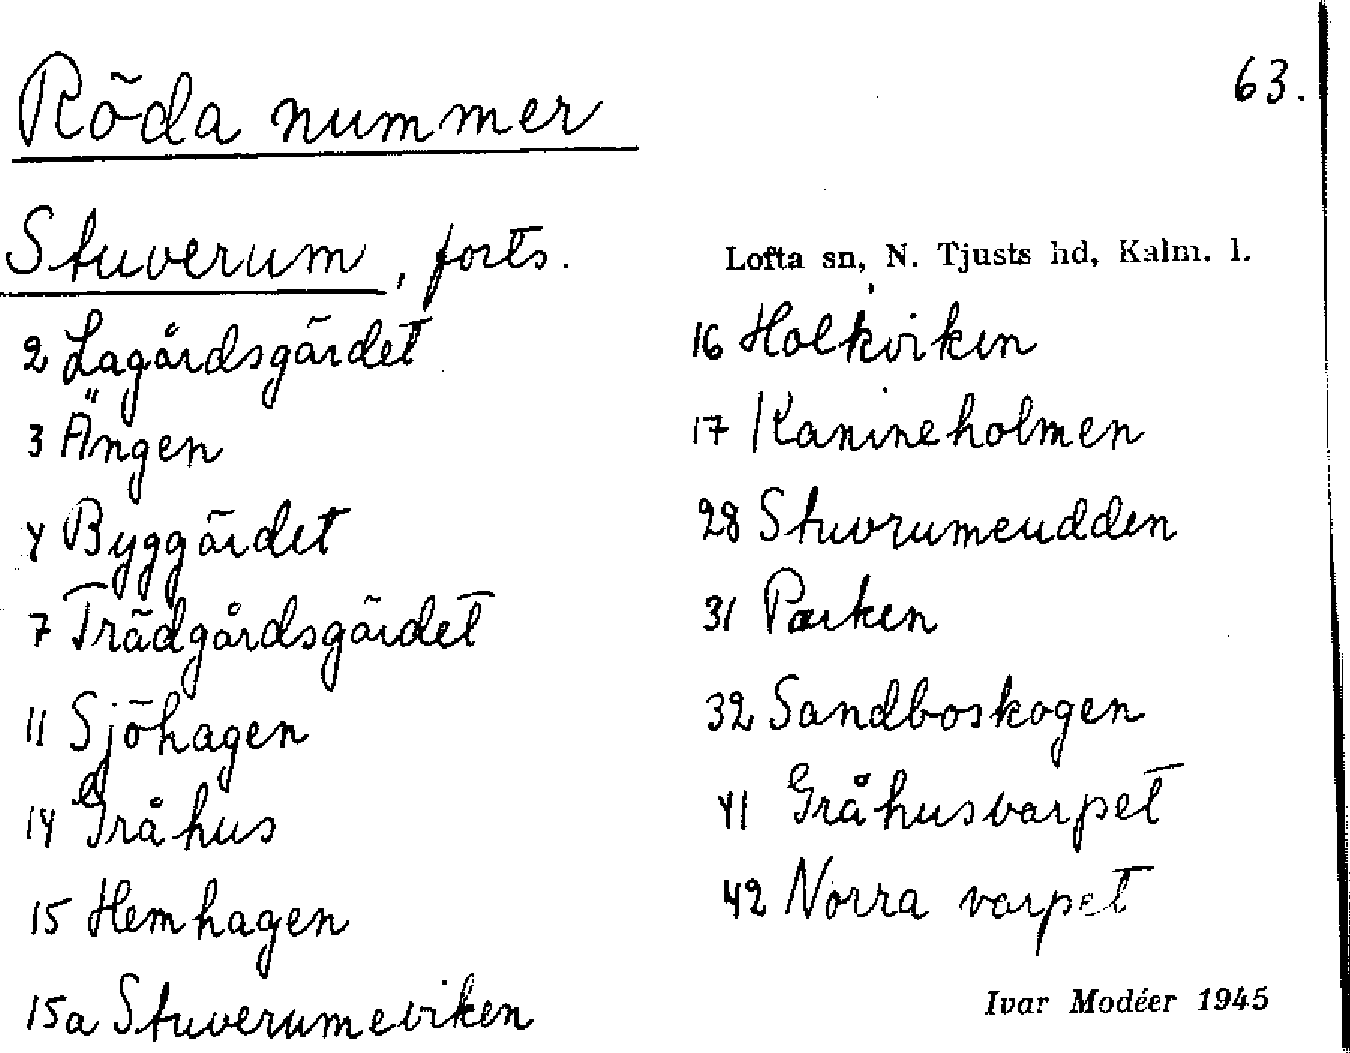 63.
Röda nummer
Stuverum, forts.
Lofta sn, N. Tjusts hd, Kalm. l.
2 Lagårdsgärdet
3 Ängen
4 Byggärdet
7 Trädgårdsgärdet
11 Sjöhagen
14 Gråhus
15 Hemhagen
15a Stuverumeviken
16 Holkviken
17 Kanineholmen
28 Stuvrumeudden
31 Parken
32 Sandboskogen
41 Gråhusvarpet
42 Norra varpet
Ivar Modéer 1945